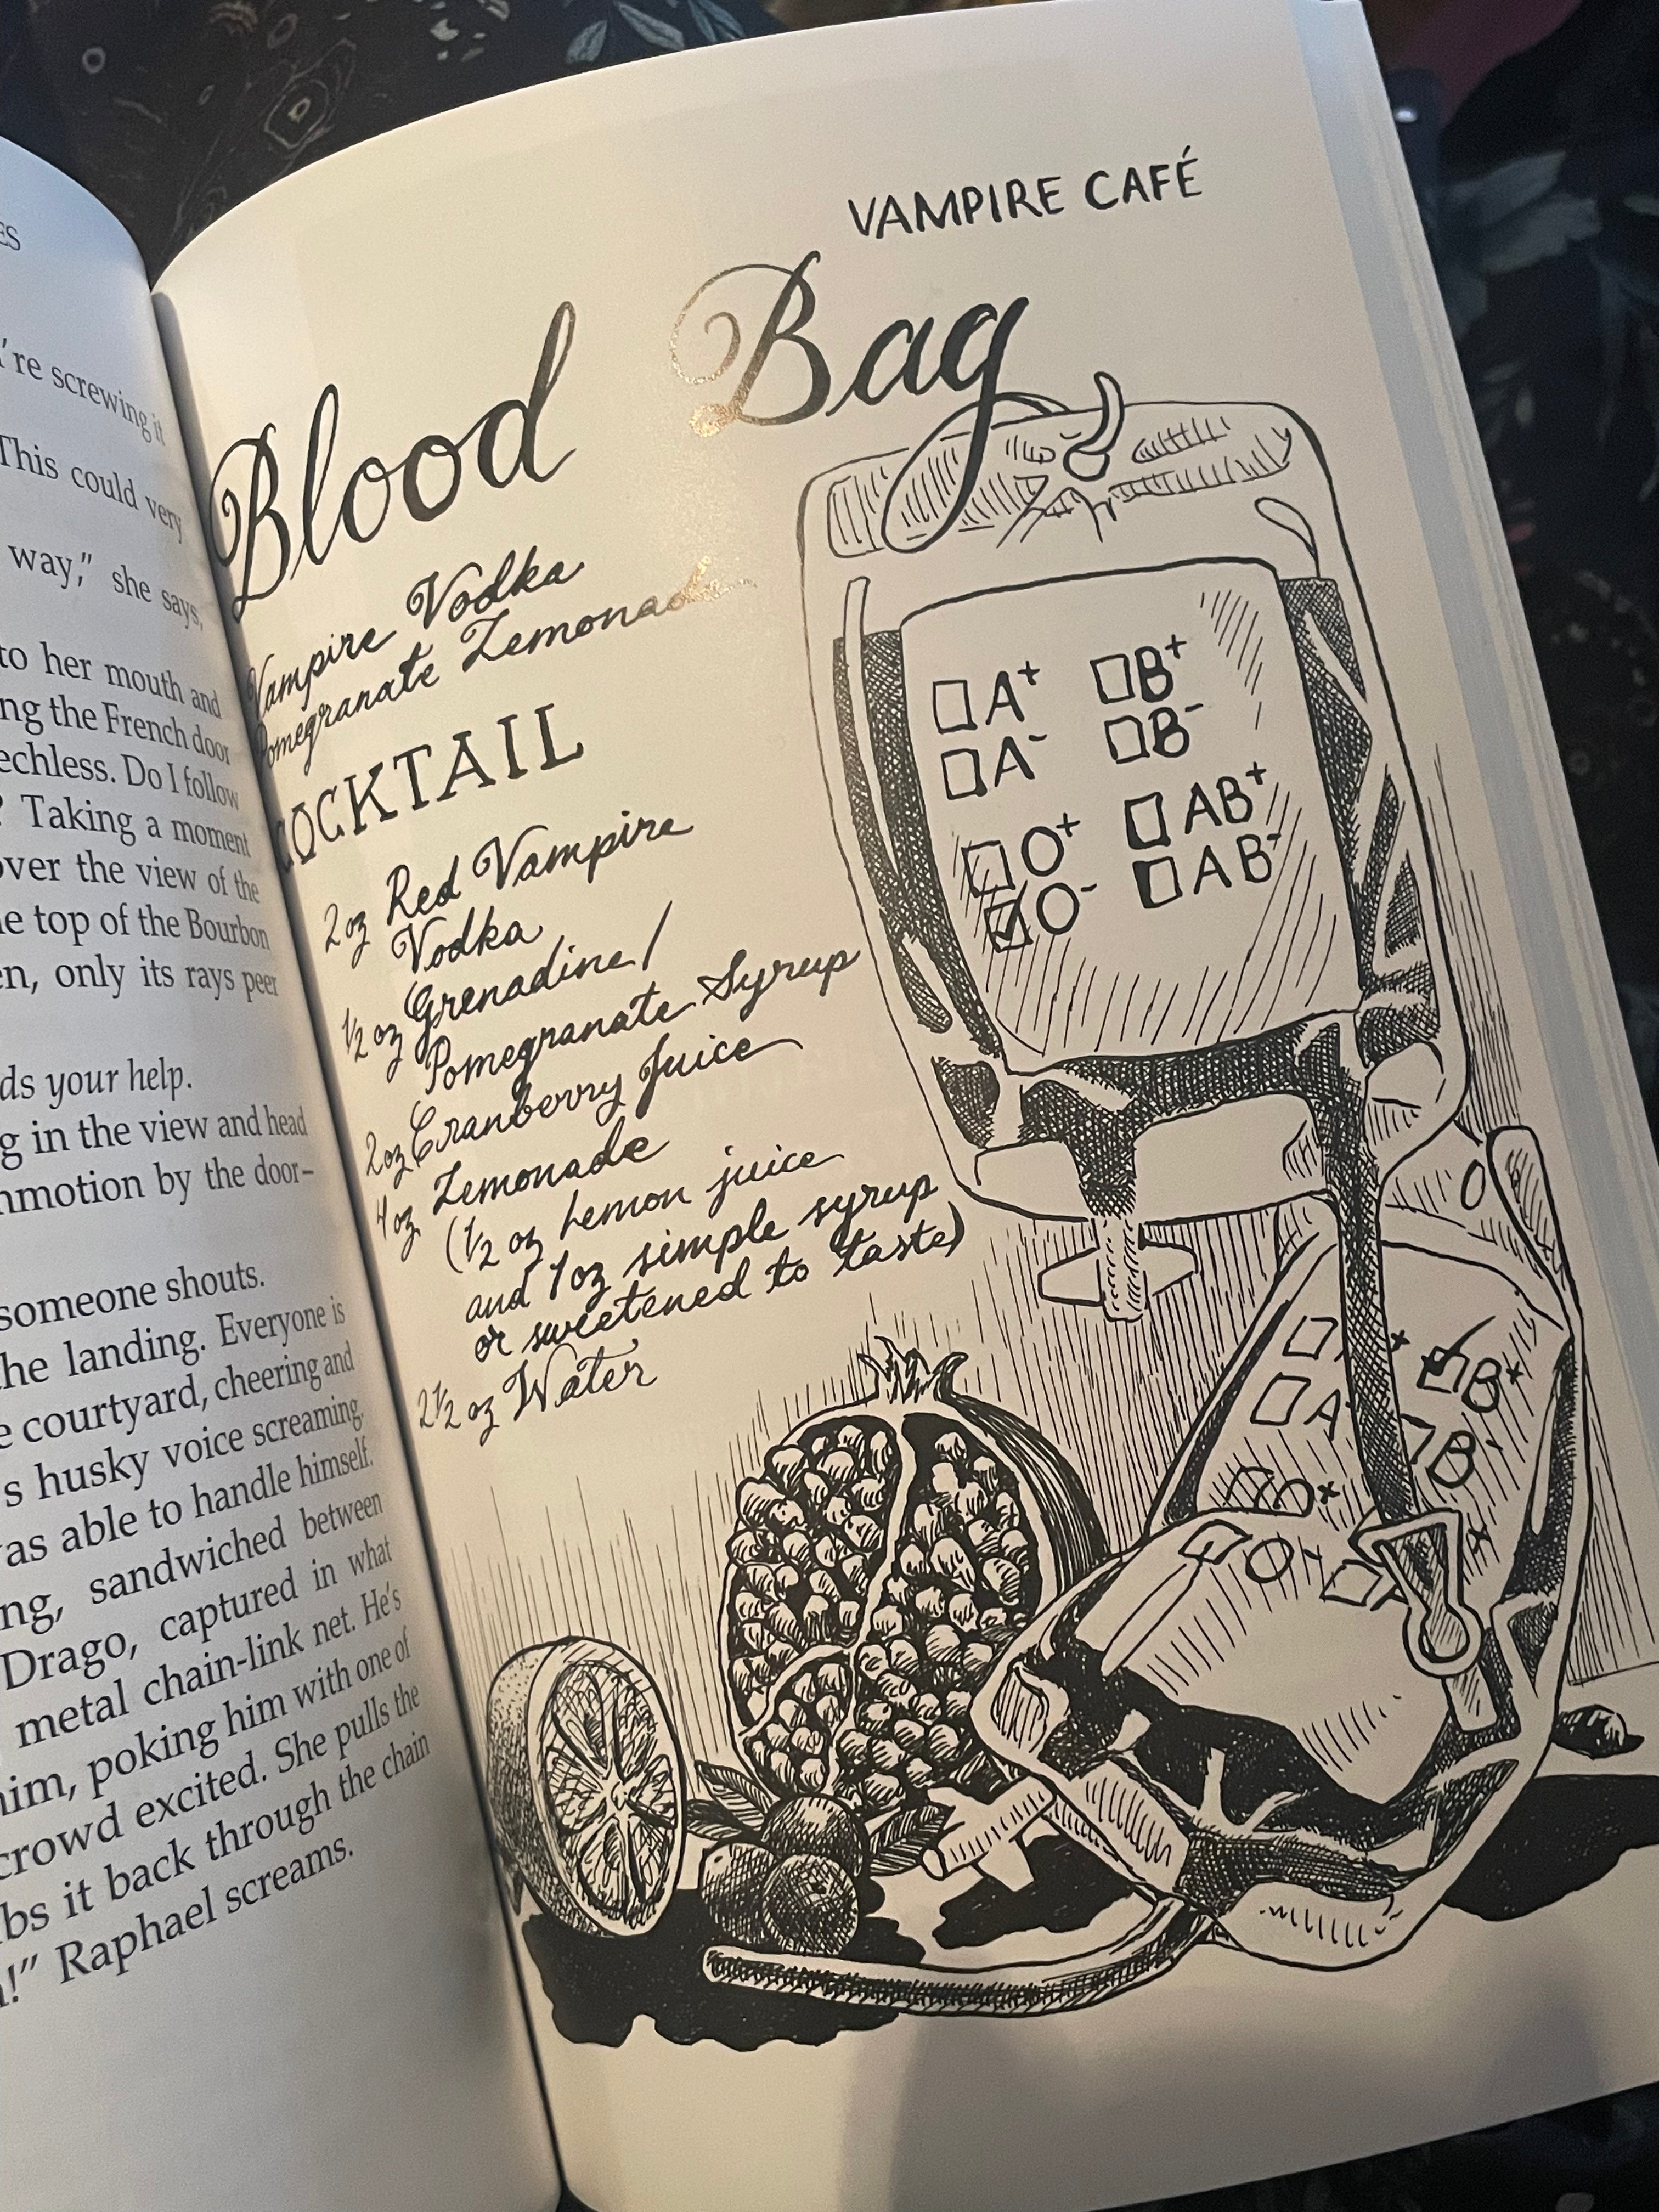 ES
're screwing it
This could very
way," she says,
to her mouth and
ng the French door
echless. Do I follow
? Taking a moment
over the view of the
e top of the Bourbon
en, only its rays peer
ds your help.
g in the view and head
nmotion by the door-
someone shouts.
he landing. Everyone is
e courtyard, cheering and
s husky voice screaming.
as able to handle himself.
ng, sandwiched between
Drago, captured in what
metal chain-link net. He's
him, poking him with one of
crowd excited. She pulls the
bs it back through the chain
!" Raphael screams.
VAMPIRE CAFÉ
Blood Bag
Vampire Vodka
Pomegranate Lemonade
COCKTAIL
2 oz Red Vampire
Vodka
1/2 oz Grenadine/
Pomegranate Syrup
2 oz Cranberry Juice
4 oz Lemonade
(1/2 oz Lemon juice
and 1 oz simple syrup
or sweetened to taste)
2 1/2 oz Water
☐ A+ ☐ B+
☐ A- ☐ B-
☐ O+ ☐ AB+
☑ O- ☐ AB-
☑ B+
☐ A- B-
O+